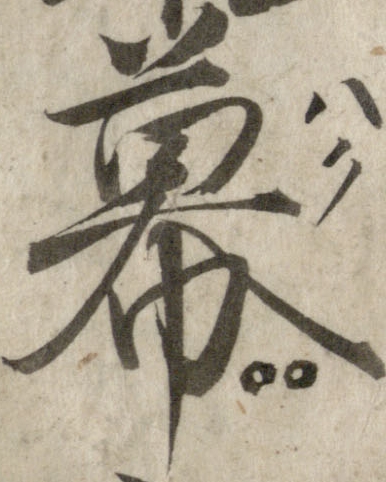 幕
ハク